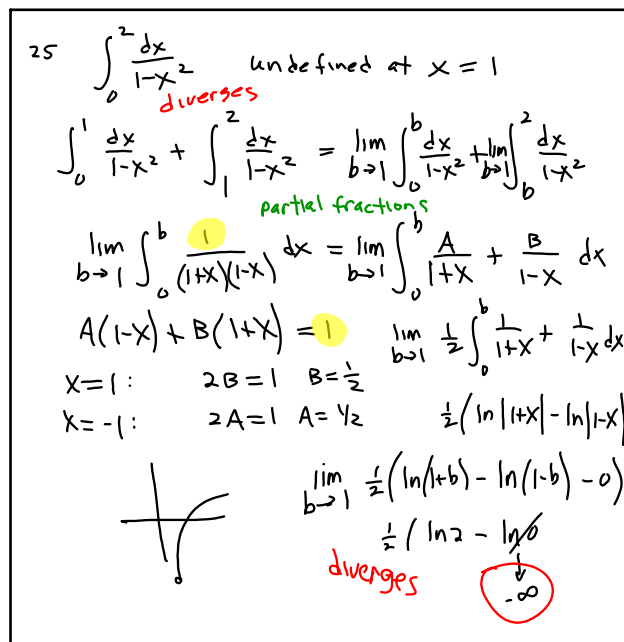 25 ∫₀² dx/(1-x²) undefined at x = 1
diverges
∫₀¹ dx/(1-x²) + ∫₁² dx/(1-x²) = lim b→1 ∫₀ᵇ dx/(1-x²) + lim b→1 ∫_b² dx/(1-x²)
partial fractions
lim b→1 ∫₀ᵇ 1/((1+x)(1-x)) dx = lim b→1 ∫₀ᵇ A/(1+x) + B/(1-x) dx
A(1-x) + B(1+x) = 1
lim b→1 ½ ∫₀ᵇ 1/(1+x) + 1/(1-x) dx
x=1: 2B=1 B=½
x=-1: 2A=1 A=1/2
½(ln|1+x| - ln|1-x|
lim b→1 ½(ln(1+b) - ln(1-b) - 0)
½( ln2 - ln0
diverges
-∞